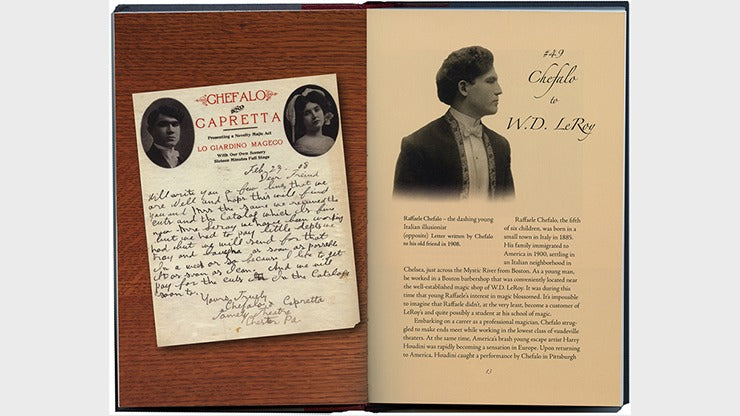 CHEFALO
AND
CAPRETTA
Presenting a Novelty Magic Act
LO GIARDINO MAGECO
With Our Own Scenery
Sixteen Minutes Full Stage
Feb, 23, 08
Dear Friend
Will write you a few lines that we
are Well and hope this will find
you and Mrs the same we received the
cuts and the Catalog which is fine
now Mr Leroy we have been working
but we had to pay little depts we
had but we will send for that
tray and as soon as possible
In a week or so because I like to get
it as soon as I can. And we will
pay for the cuts In the Catalog
soon to.
Yours Truly
Chefalo & Capretta
Family Theatre
Chester Pa
#49
Chefalo
to
W.D. LeRoy
Raffaele Chefalo – the dashing young
Italian illusionist
(opposite) Letter written by Chefalo
to his old friend in 1908.
Raffaele Chefalo, the fifth
of six children, was born in a
small town in Italy in 1885.
His family immigrated to
America in 1900, settling in
an Italian neighborhood in
Chelsea, just across the Mystic River from Boston. As a young man,
he worked in a Boston barbershop that was conveniently located near
the well-established magic shop of W.D. LeRoy. It was during this
time that young Raffaele's interest in magic blossomed. It's impossible
to imagine that Raffaele didn't, at the very least, become a customer of
LeRoy's and quite possibly a student at his school of magic.
Embarking on a career as a professional magician, Chefalo strug-
gled to make ends meet while working in the lowest class of vaudeville
theaters. At the same time, America's brash young escape artist Harry
Houdini was rapidly becoming a sensation in Europe. Upon returning
to America, Houdini caught a performance by Chefalo in Pittsburgh
13